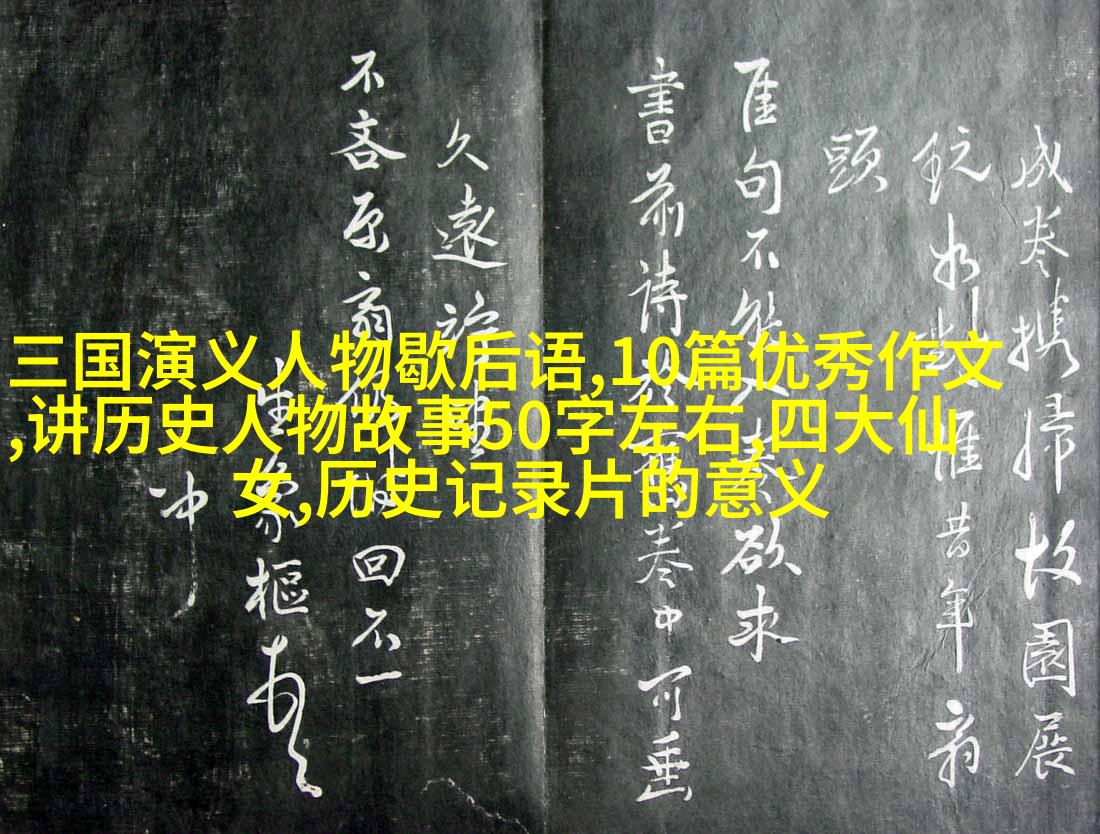 三国演义人物歇后语,10篇优秀作文
,讲历史人物故事50字左右,四大仙
女,历史记录片的意义
成卷携歸故園展
玩如對惟昔年翁
頭
佳句不能入奏欲求
書前詩於舊卷中可垂
久遠
不吝原翁回不一
生家樞
冲